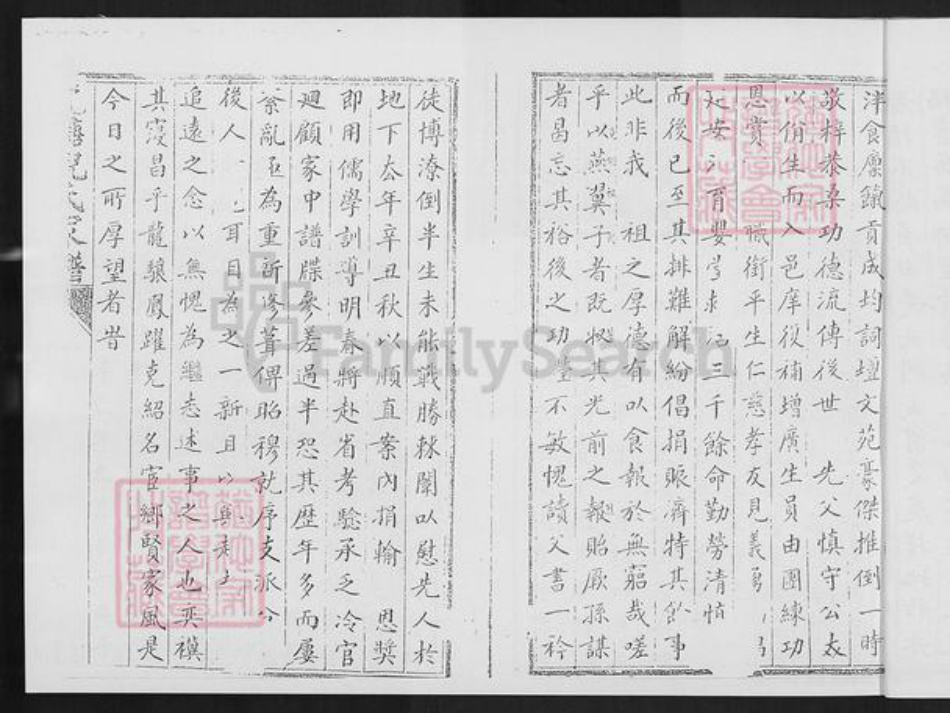 泮食廩餼貢成均詞壇文苑豪傑推倒一時
敬梓恭桑功德流傳後世 先父慎守公太
以佾生而入邑庠從補增廣生員由團練功
恩賞 職銜平生仁慈孝友見義
安 育嬰 三千餘命勤勞清慎
而後已至其排難解紛倡捐賑濟特其 事
此非我 祖之厚德有以食報於無窮哉嗟
乎以燕翼子者既收其光前之報貽厥孫謀
者曷忘其裕後之功 不敏愧讀父書一衿
徒博潦倒半生未能戰勝棘闈以慰先人於
地下去年辛丑秋以順直案內捐輸 恩獎
即用儒學訓導明春將赴省考驗承乏冷官
廻顧家中譜牒參差過半恐其歷年多而屢
紊亂 為重新修葺俾昭穆就序支派分
後人 耳目為之一新且以
追遠之念以無愧為繼志述事之人也奕禩
其寖昌乎龍驤鳳躍克紹名宦鄉賢家風是
今日之所厚望者昔
氏家譜
FamilySearch